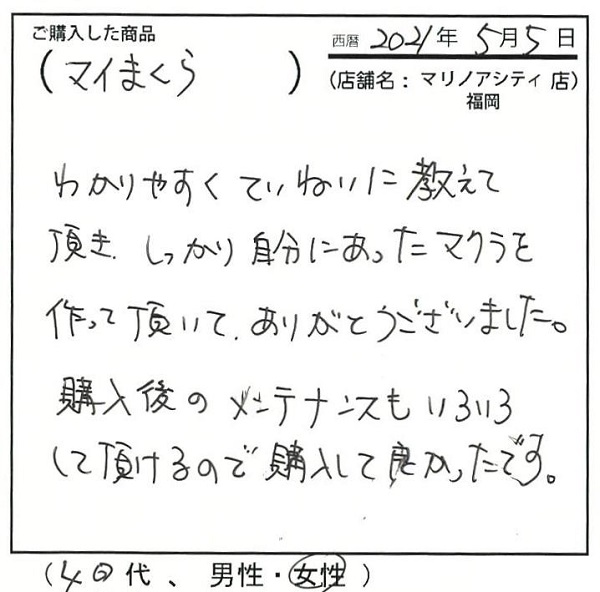 ご購入した商品
(マイまくら)
西暦 2021年 5月5日
(店舗名：マリノアシティ店)
福岡
わかりやすくていねいに教えて
頂き、しっかり自分にあったマクラを
作って頂いて、ありがとうございました。
購入後のメンテナンスもいろいろ
して頂けるので購入して良かったです。
(40代、男性・女性)